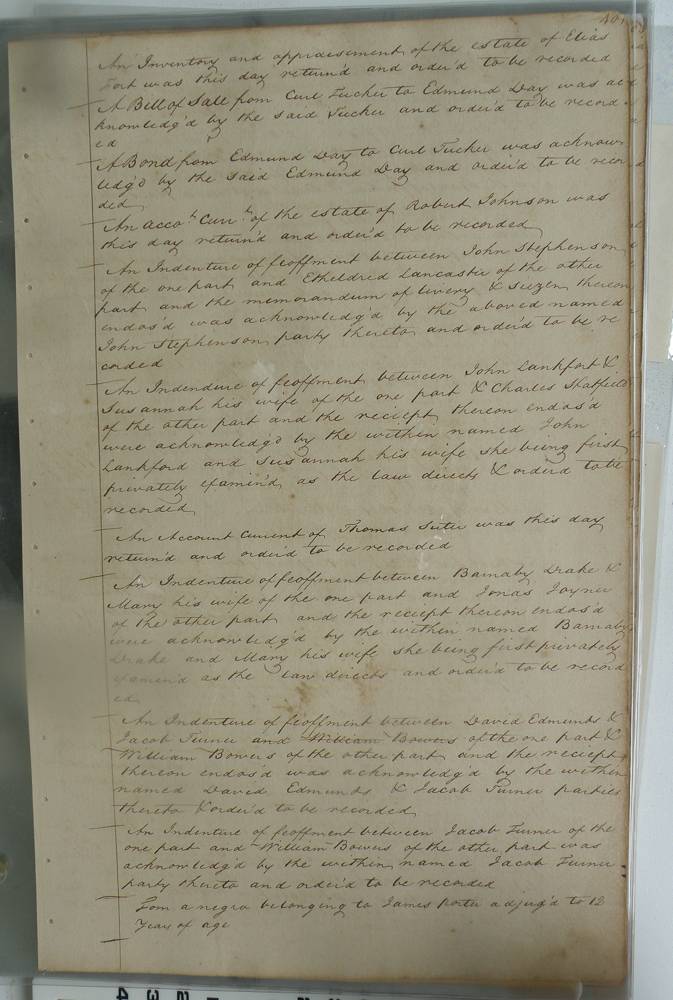 401
An Inventory and appraisement of the estate of Elias
Fort was this day return'd and order'd to be recorded
A Bill of Sale from Curl Tucker to Edmund Day was ac
knowledg'd by the said Tucker and order'd to be record
ed
A Bond from Edmund Day to Curl Tucker was acknow
ledg'd by the said Edmund Day and order'd to be recor
ded
An Acco.t Curr.t of the estate of Robert Johnson was
this day return'd and order'd to be recorded
An Indenture of feoffment between John Stephenson
of the one part and Etheldred Lancaster of the other
part and the memorandum of livery & Seizen thereon
endos'd was acknowledg'd by the aboved named
John Stephenson party thereto and order'd to be re
corded
An Indendure of feoffment between John Lankfort &
Susannah his wife of the one part & Charles Shaffield
of the other part and the reciept thereon endos'd
were acknowledg'd by the within named John
Lankford and Susannah his wife she being first
privately examin'd as the law directs & order'd to be
recorded
An Account Current of Thomas Suter was this day
return'd and order'd to be recorded
An Indenture of feoffment between Barnaby Drake &
Mary his wife of the one part and Jonas Joyner
of the other part and the reciept thereon endos'd
were acknowledg'd by the within named Barnaby
Drake and Mary his wife she being first privately
examin'd as the law directs and order'd to be record
ed
An Indenture of feoffment between David Edmunds &
Jacob Turner and William Bowers of the one part &
William Bowers of the other part and the reciept
thereon endos'd was acknowledg'd by the within
named David Edmunds & Jacob Turner parties
thereto & order'd to be recorded
An Indenture of feoffment between Jacob Turner of the
one part and William Bowers of the other part was
acknowledg'd by the within named Jacob Turner
party thereto and order'd to be recorded
Tom a negro belonging to James Porter adjug'd to 12
Years of age